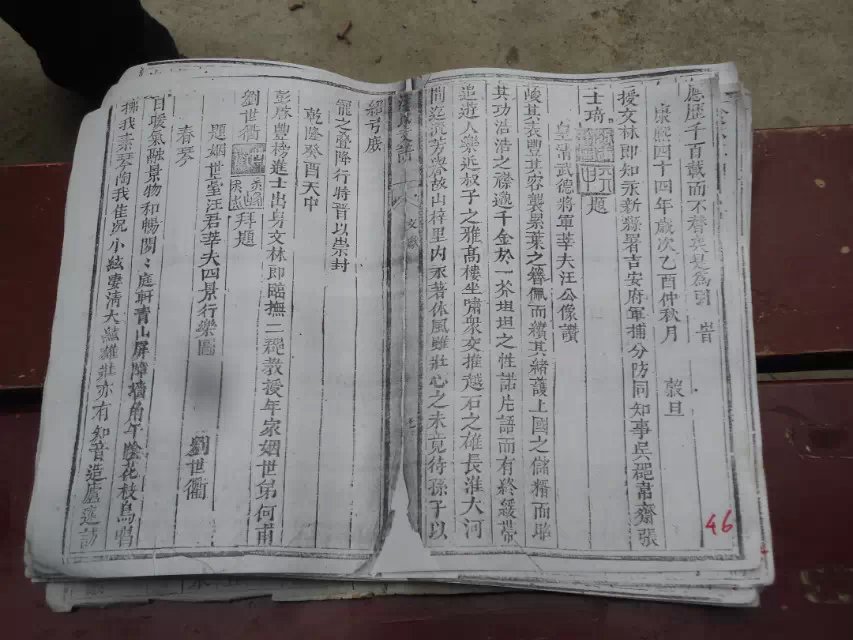 應歷千百載而不替矣是為引 旹
康熙四十四年歲次乙酉仲秋月 穀旦
授文林郎知永新縣署吉安府軍捕分防同知事吳 張
士琦 題
皇清武德將軍莘夫汪公像讚
峻其表豐其容襲累葉之簪佩而纘其緒護上國之儲糈而
其功浩浩之襟 千金於一芥坦坦之性諾片語而有終緩帶
追遊人樂近叔子之雅高樓坐嘯眾交推越石之雄長淮大河
間迄流芳譽故山梓里內丕著休風雖壯心之未竟待孫子以
紹弓裘
寵之 降行特晉以崇封
乾隆癸酉天中
彭啟豐榜進士出身文林郎臨撫二 教授年家姻世弟何甫
劉世衢 拜題
題姻世室汪君莘夫四景行樂圖
春琴 劉世衢
日暖氣融景物和暢閴閴庭軒青山屏障墻角午陰花枝鳥唱
撫我素琴陶我佳況小絃淒清大絃 壯亦有知音造廬 訪
46